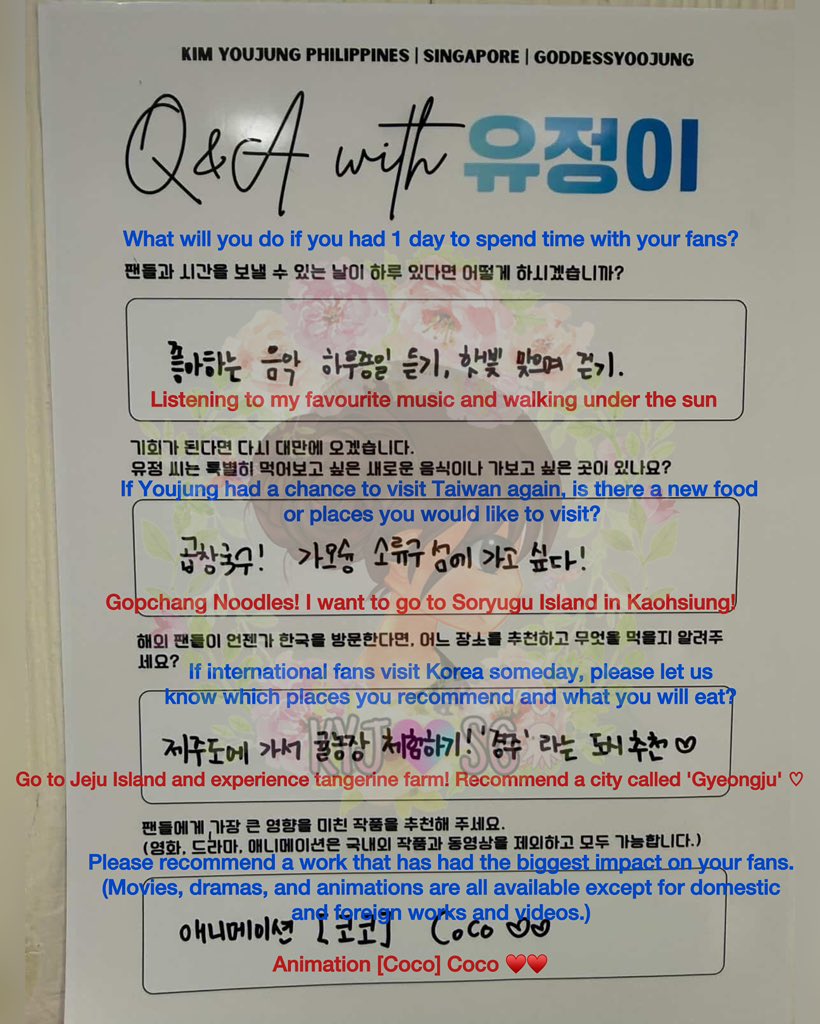 KIM YOUJUNG PHILIPPINES | SINGAPORE | GODDESSYOOJUNG
Q&A with 유정이
What will you do if you had 1 day to spend time with your fans?
팬들과 시간을 보낼 수 있는 날이 하루 있다면 어떻게 하시겠습니까?
좋아하는 음악 하루종일 듣기, 햇빛 맞으며 걷기.
Listening to my favourite music and walking under the sun
기회가 된다면 다시 대만에 오겠습니다.
유정 씨는 특별히 먹어보고 싶은 새로운 음식이나 가보고 싶은 곳이 있나요?
If Youjung had a chance to visit Taiwan again, is there a new food
or places you would like to visit?
곱창국수! 가오슝 소류구 섬에 가고 싶다!
Gopchang Noodles! I want to go to Soryugu Island in Kaohsiung!
해외 팬들이 언젠가 한국을 방문한다면, 어느 장소를 추천하고 무엇을 먹을지 알려주
세요?
If international fans visit Korea someday, please let us
know which places you recommend and what you will eat?
제주도에 가서 귤농장 체험하기! '경주' 라는 도시 추천 ♡
KYJ SG
Go to Jeju Island and experience tangerine farm! Recommend a city called 'Gyeongju' ♡
팬들에게 가장 큰 영향을 미친 작품을 추천해 주세요.
(영화, 드라마, 애니메이션은 국내외 작품과 동영상을 제외하고 모두 가능합니다.)
Please recommend a work that has had the biggest impact on your fans.
(Movies, dramas, and animations are all available except for domestic
and foreign works and videos.)
애니메이션 [코코] Coco ♡♡
Animation [Coco] Coco ♥♥